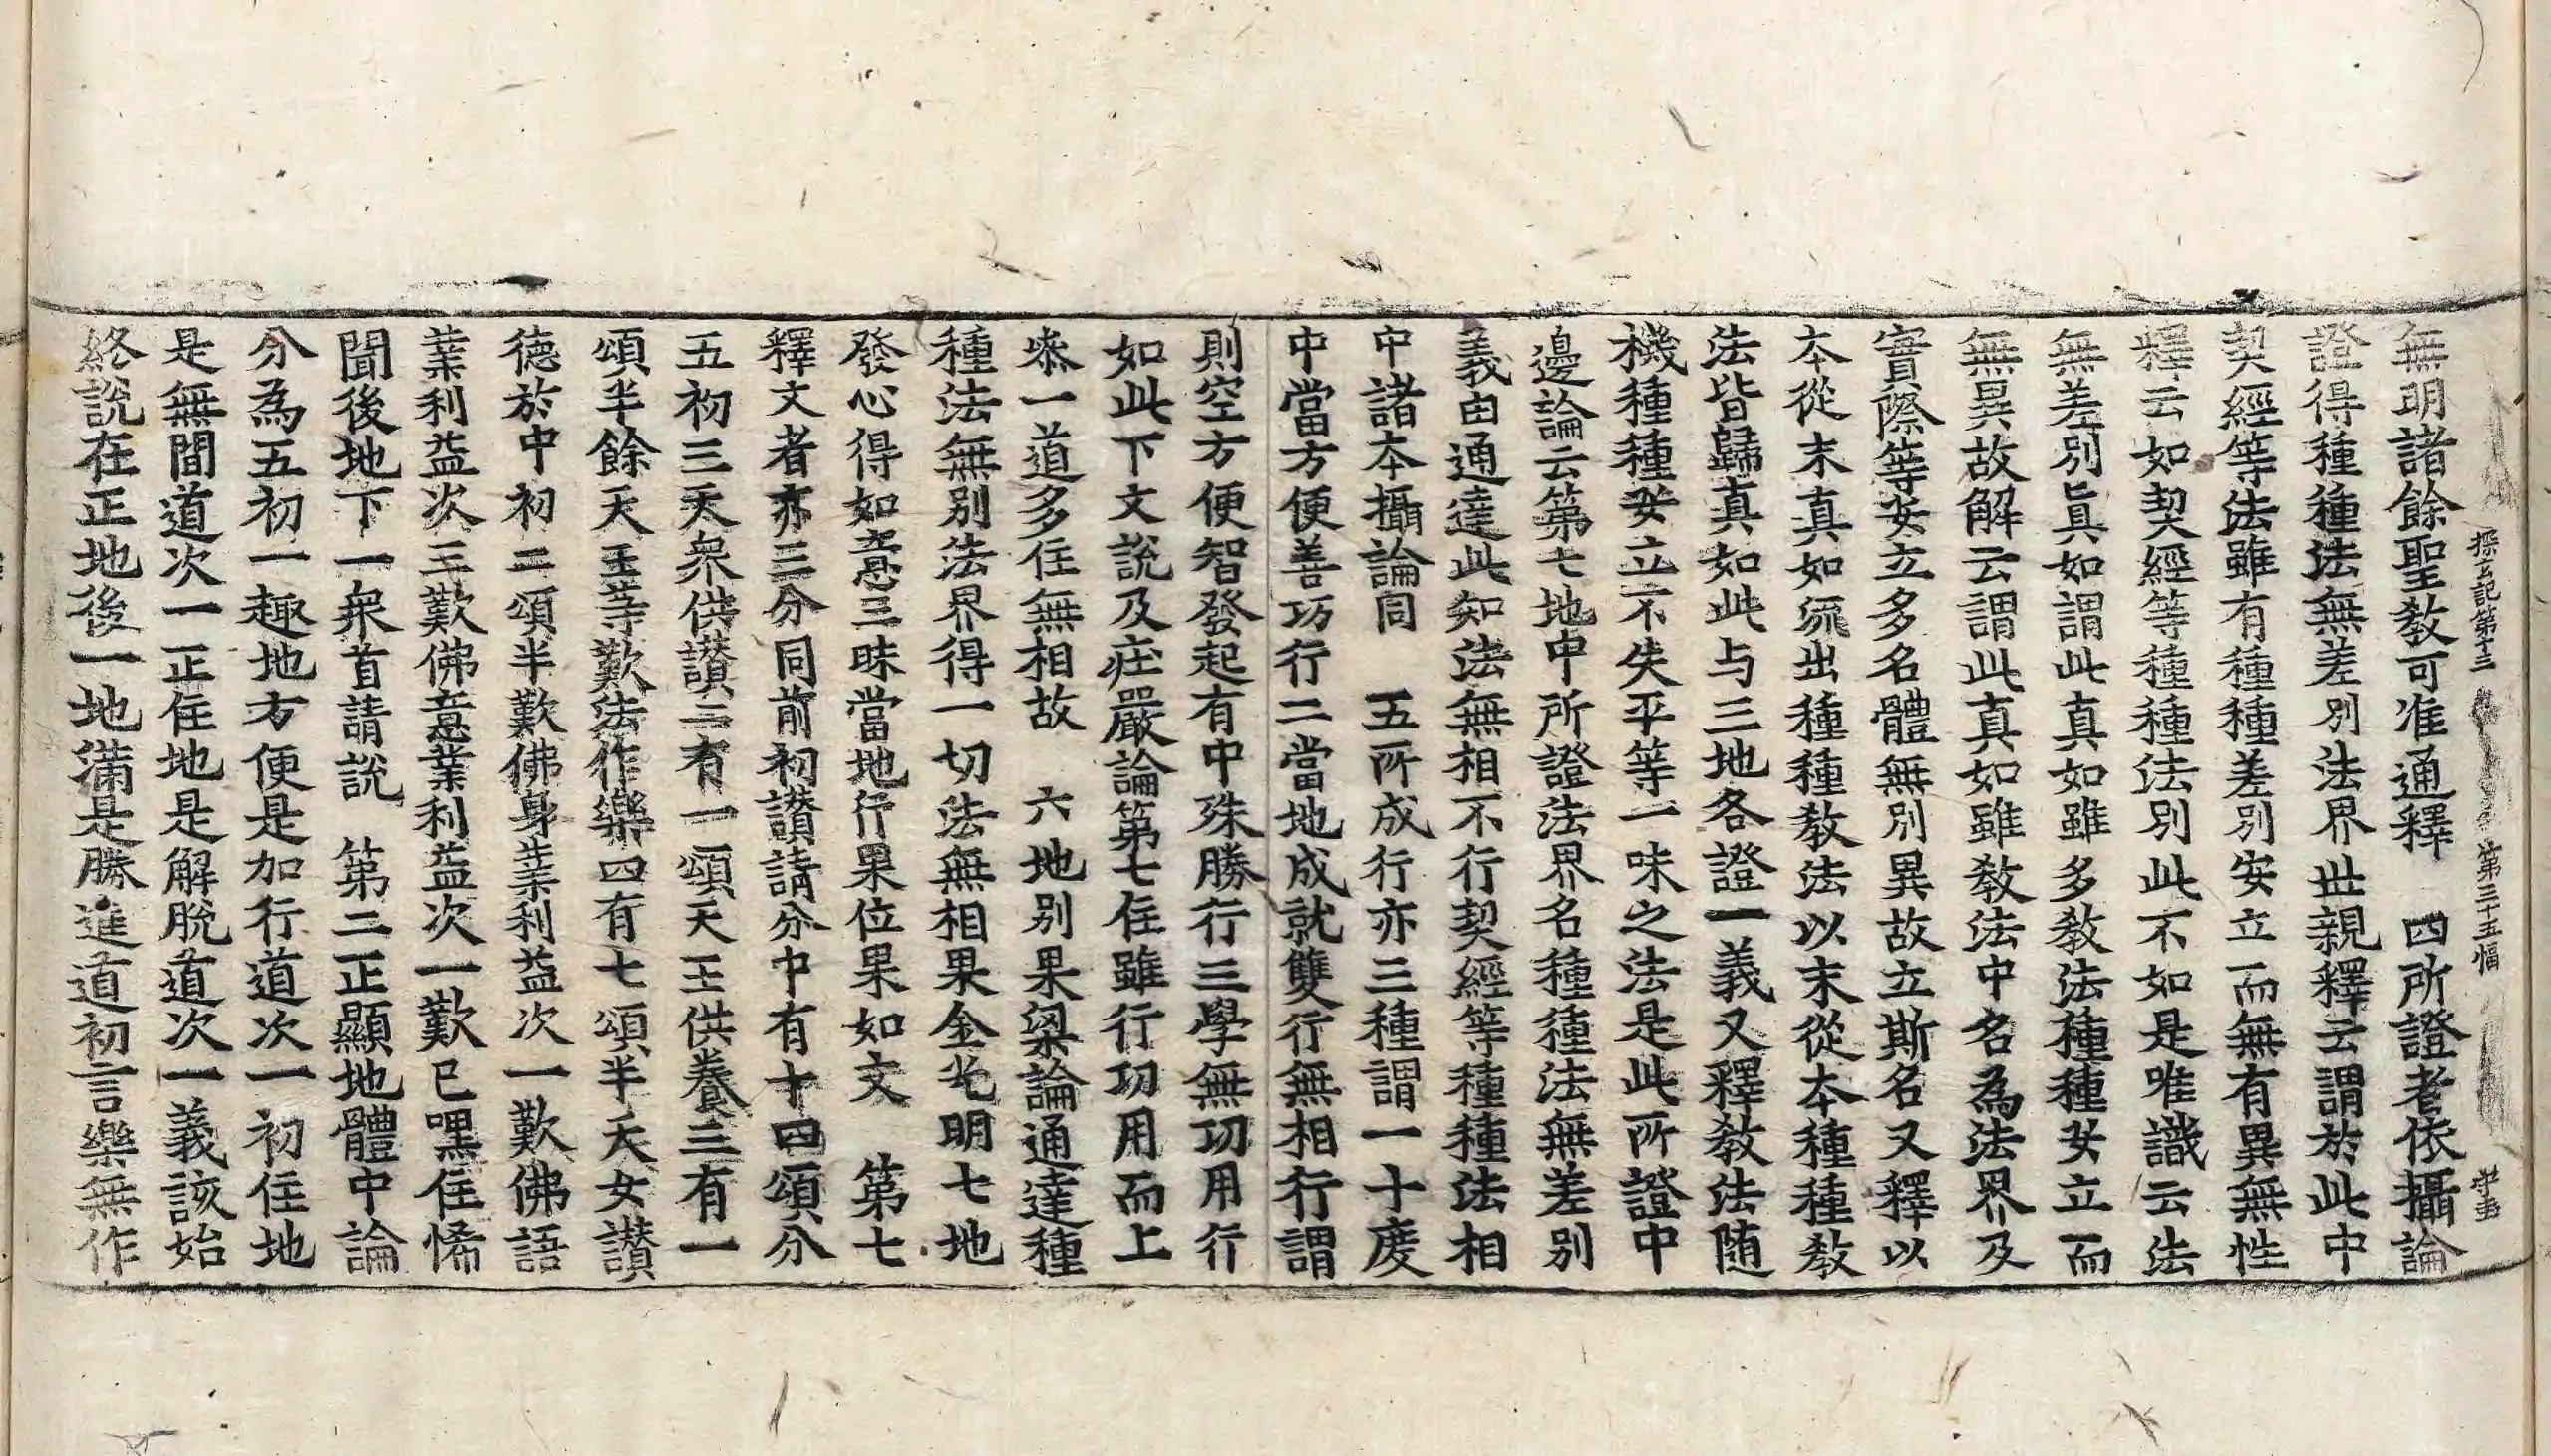 探玄記第十三 第三十五幅
無明諸餘聖教可准通釋 四所證者依攝論
證得種種法無差別法界世親釋云謂於此中
契經等法雖有種種差別安立而無有異無性
釋云如契經等種種法別此不如是唯識云法
無差別真如謂此真如雖多教法種種安立而
無異故解云謂此真如雖教法中名為法界及
實際等安立多名體無別異故立斯名又釋以
本從末真如流出種種教法以末從本種種教
法皆歸真如此与三地各證一義又釋教法随
機種種安立不失平等一味之法是此所證中
邊論云第七地中所證法界名種種法無差別
義由通達此知法無相不行契經等種種法相
中諸本攝論同 五所成行亦三種謂一十度
中當方便善巧行二當地成就雙行無相行謂
則空方便智發起有中殊勝行三學無功用行
如此下文說及庄嚴論第七住雖行功用而上
烝一道多住無相故 六地別果梁論通達種
種法無別法界得一切法無相果金光明七地
發心得如意三昧當地行果位果如文 第七
釋文者亦三分同前初讃請分中有十四頌分
五初三天衆供讃二有一頌天王供養三有一
頌半餘天王等歎法作樂四有七頌半天女讃
德於中初二頌半歎佛身業利益次一歎佛語
業利益次三歎佛意業利益次一歎已嘿住悕
聞後地下一衆首請說 第二正顯地體中論
分為五初一趣地方便是加行道次一初住地
是無間道次一正住地是解脫道次一義該始
終說在正地後一地滿是勝進道初言樂無作